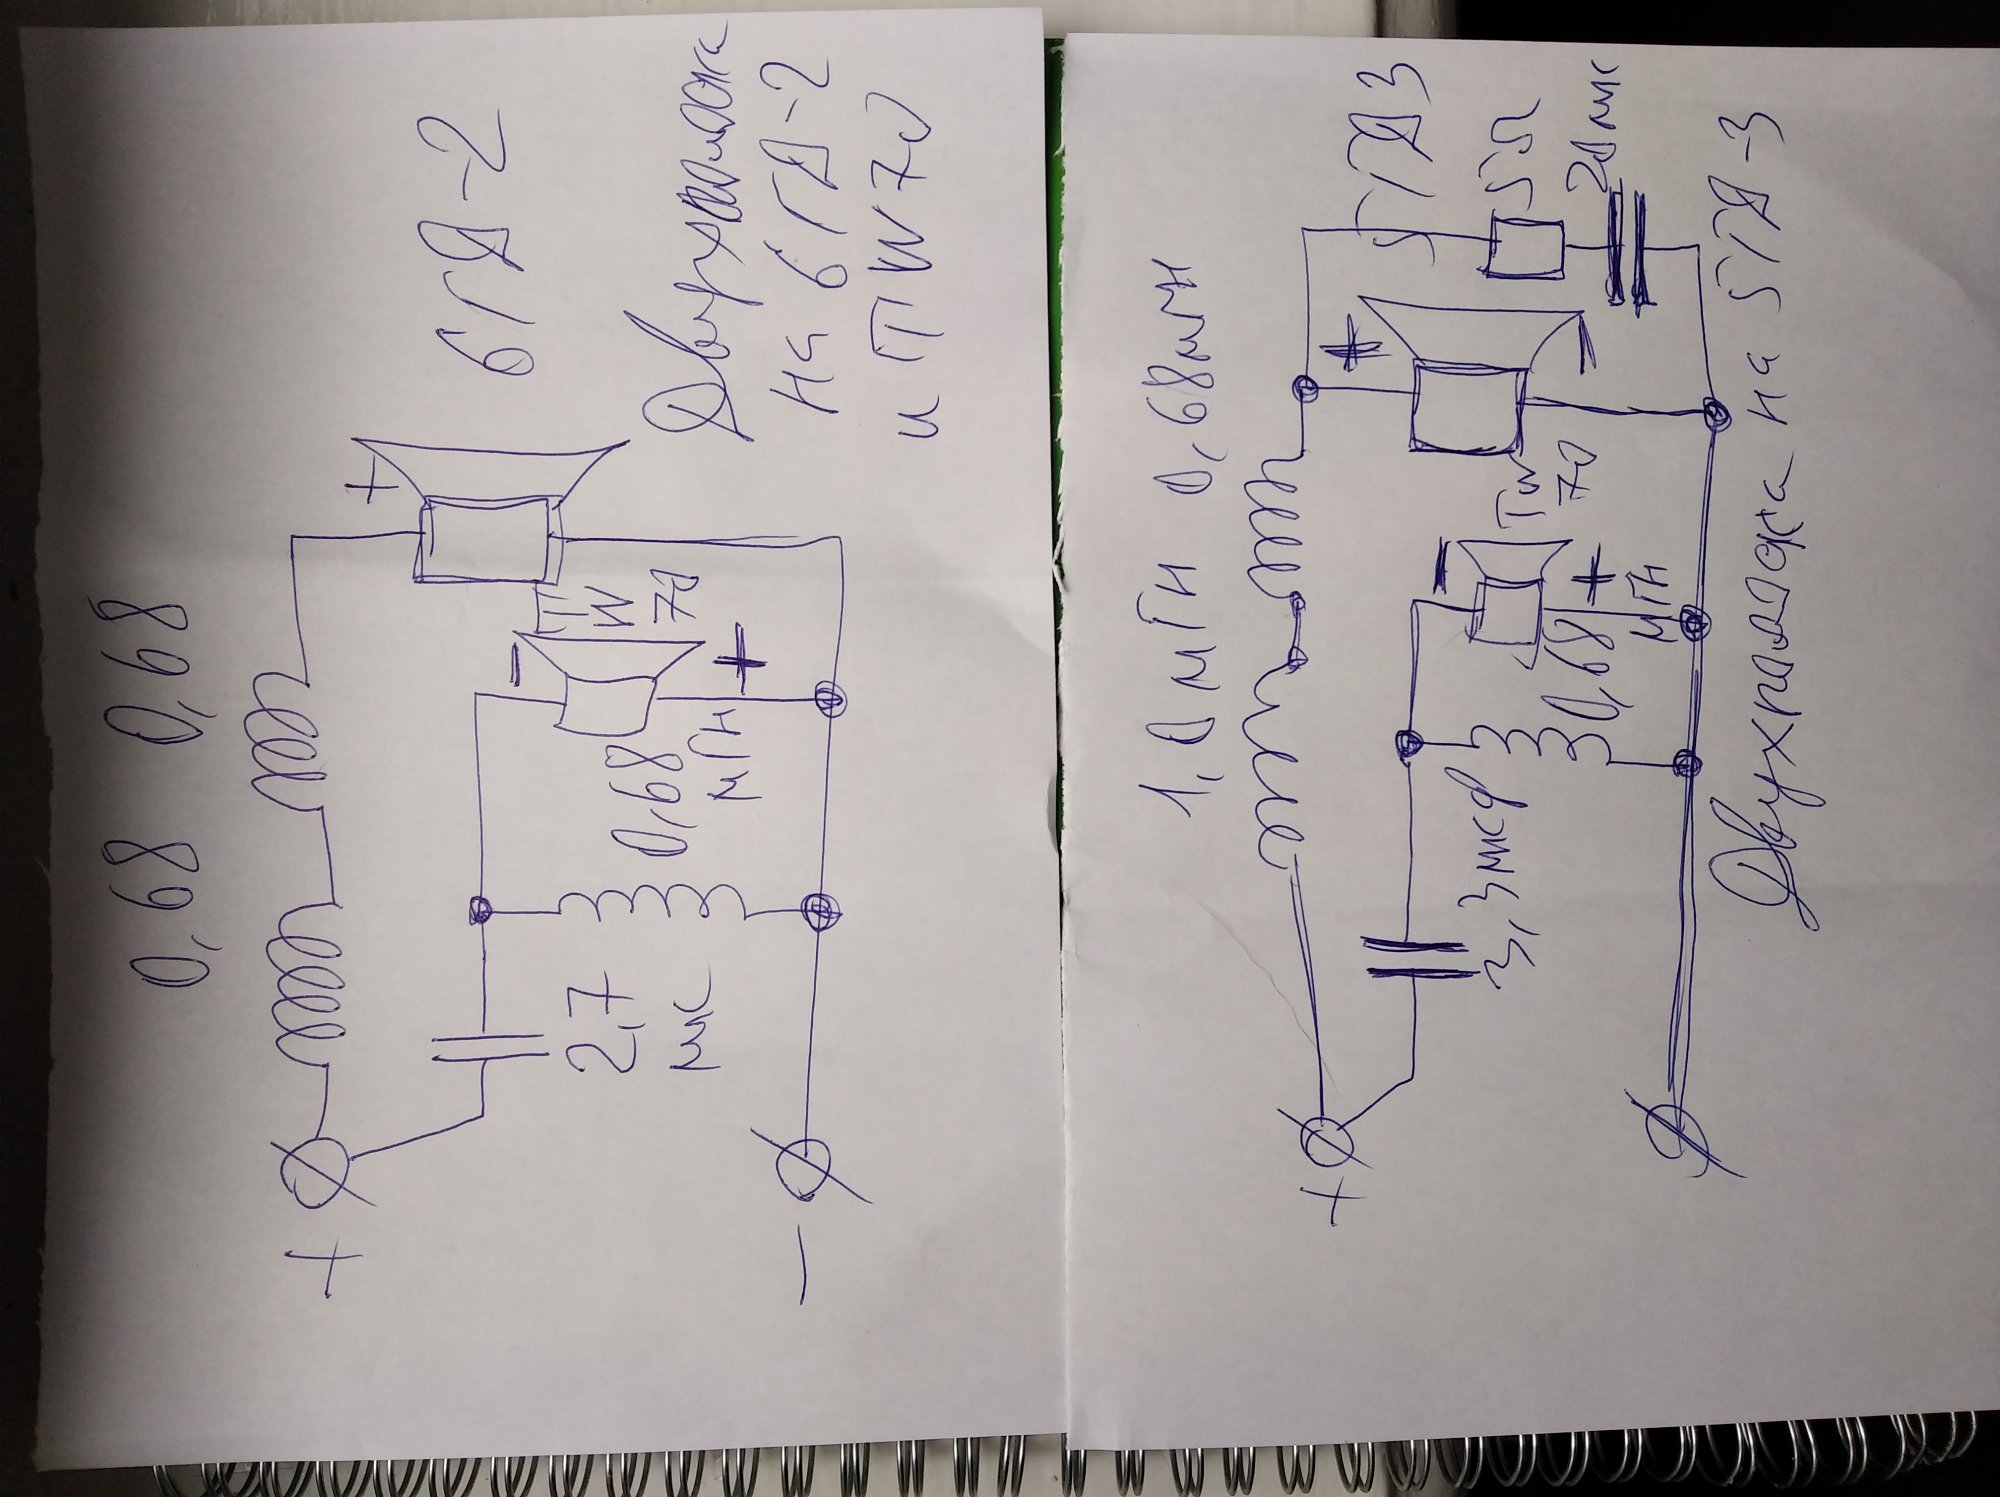 0,68 0,68
+
6ГД-2
-
TW
70
+
0,68
мГн
2,7
мк
+
-
Двухполоска
на 6ГД-2
и TW 70
1,0 мГн 0,68 мГн
5ГД3
+
5Ω
20 мк
-
TW
70
-
+
0,68
мГн
3,3 мкф
+
Двухполоска на 5ГД-3